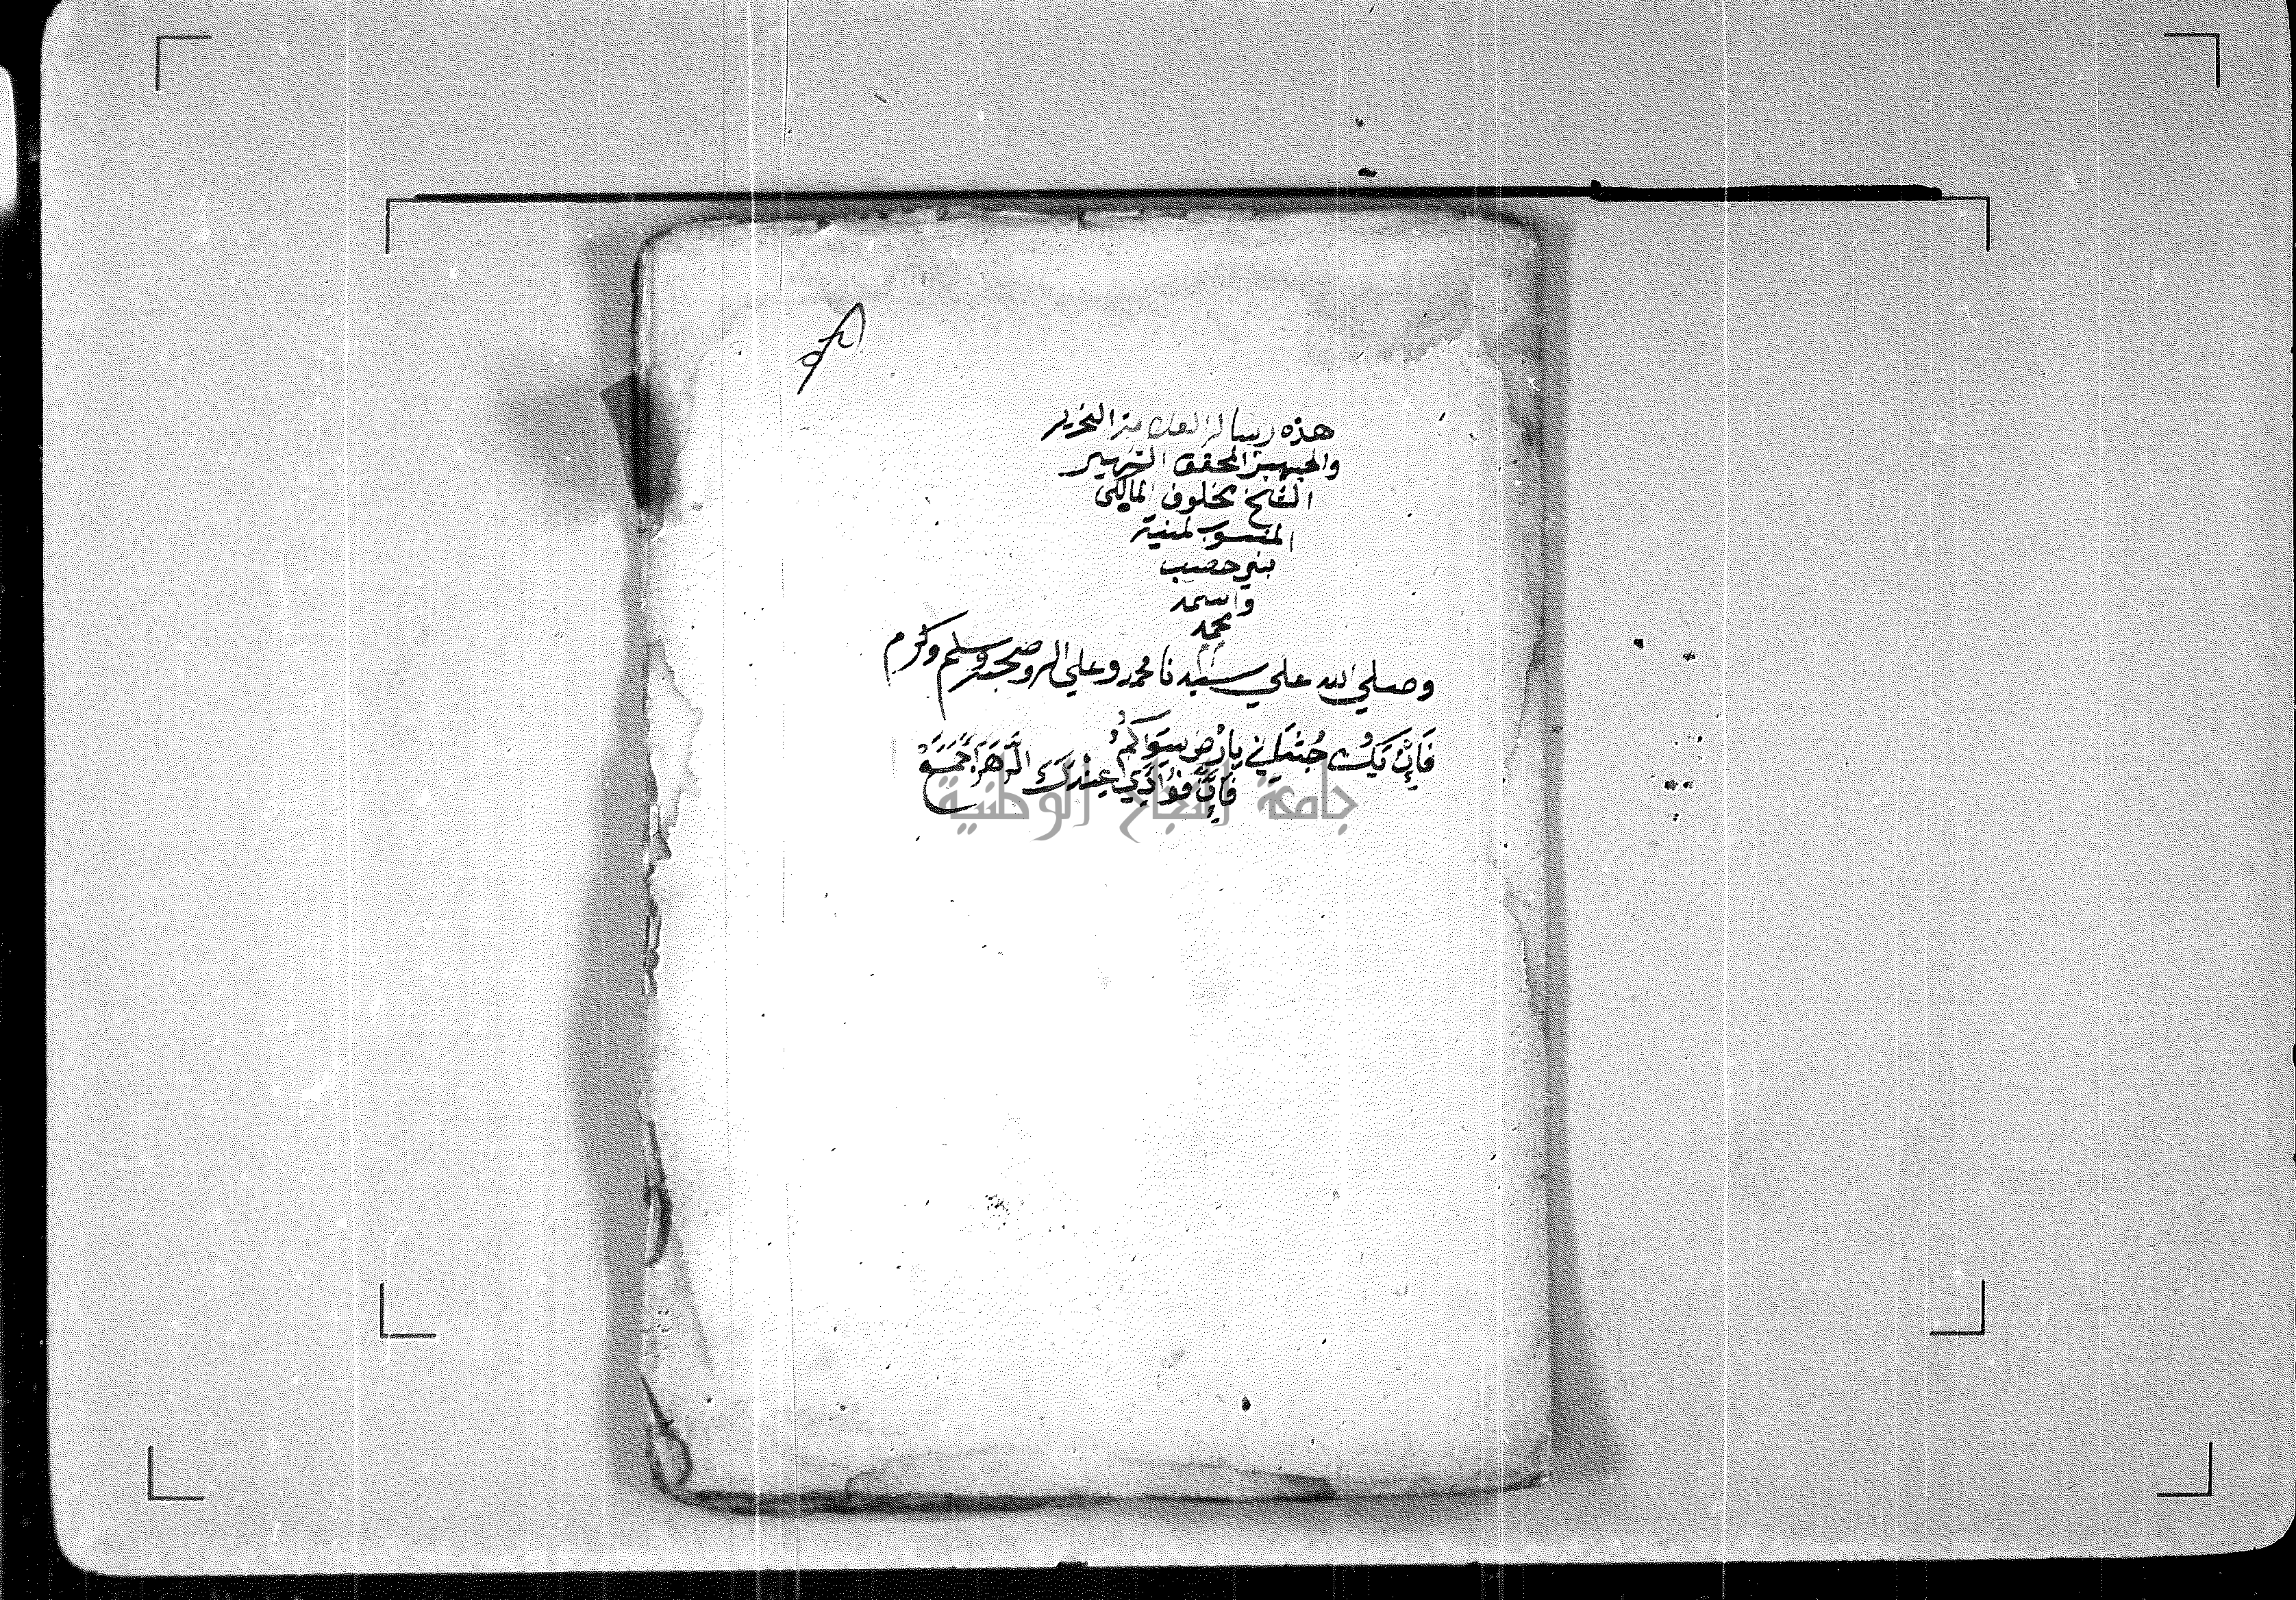 هذه رسالة العلامة النحرير
والجهبذ المحقق الشهير
الشيخ مخلوف المالكي
المنسوب لمنية
بني خصيب
واسمه
محمد
وصلي الله علي سيدنا محمد وعلي اله وصحبه وسلم وكرم
فَإِنْ تَكُ جُثْمَانِي بِأَرْضِ سِوَاكُمُ
فَإِنَّ فُؤَادِي عِنْدَكَ الدَّهْرَ أَجْمَعُ
جامعة النجاح الوطنية